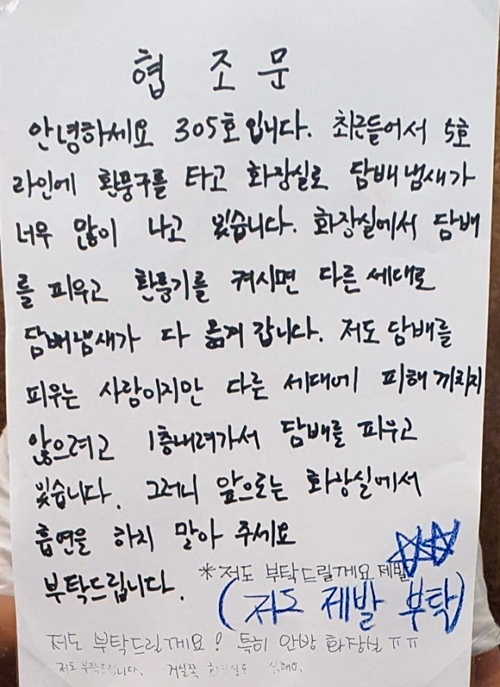 협 조 문
안녕하세요 305호입니다. 최근들어서 5호
라인에 환풍구를 타고 화장실로 담배냄새가
너무 많이 나고 있습니다. 화장실에서 담배
를 피우고 환풍기를 켜시면 다른 세대로
담배냄새가 다 옮겨 갑니다. 저도 담배를
피우는 사람이지만 다른 세대에 피해 끼치지
않으려고 1층내려가서 담배를 피우고
있습니다. 그러니 앞으로는 화장실에서
흡연을 하지 말아 주세요
부탁드립니다. *저도 부탁드릴게요 제발
(저도 제발 부탁)
저도 부탁드릴게요! 특히 안방 화장실 ㅠㅠ
저도 부탁드립니다. 거실쪽 화장실도